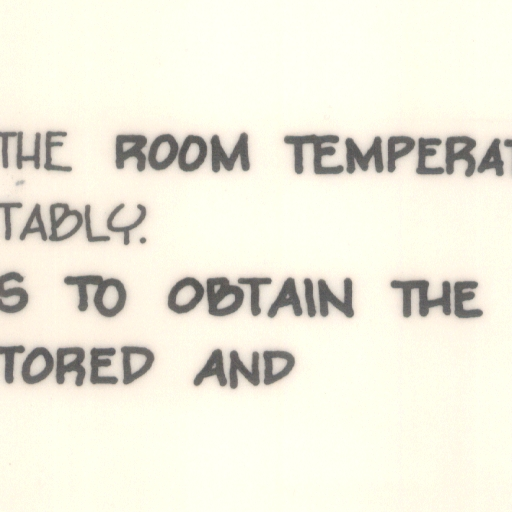 THE ROOM TEMPERAT
TABLY.
S TO OBTAIN THE
TORED AND